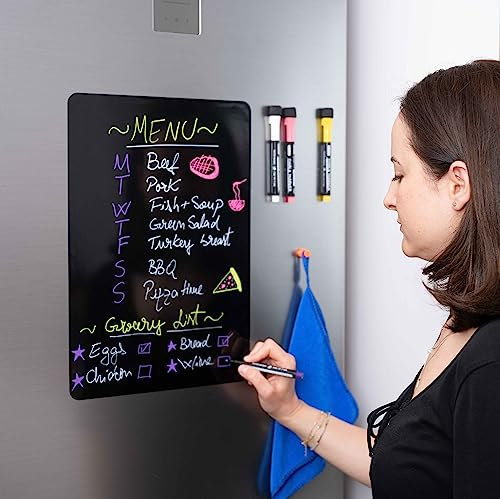 ~MENU~
M Beef
T Pork
W Fish + Soup
T Green Salad
F Turkey breast
S BBQ
S Pizza time
~ Grocery List ~
Eggs Bread
Chicken Wine